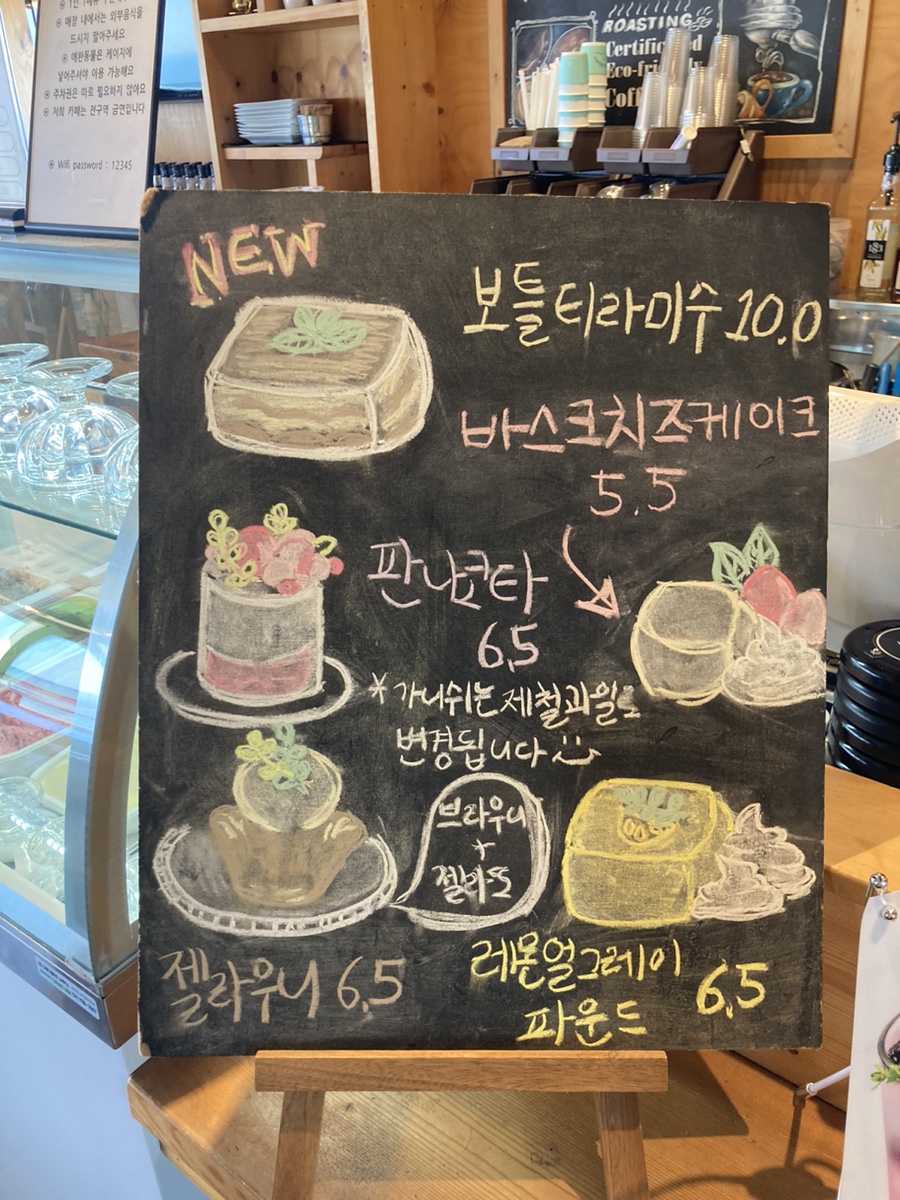 ⊙ 매장 내에서는 외부음식을
드시지 말아주세요
⊙ 애완동물은 케이지에
넣어주셔야 이용 가능해요
⊙ 주차권은 따로 필요하지 않아요
⊙ 저희 카페는 전구역 금연입니다
⊙ Wifi password : 12345
ROASTING
Certified
NEW
보틀티라미수 10.0
바스크치즈케이크
5.5
판나코타
6.5
* 가니쉬는 제철과일로
변경됩니다
브라우니
+
젤라또
젤라우니 6.5
레몬얼그레이
파운드
6.5